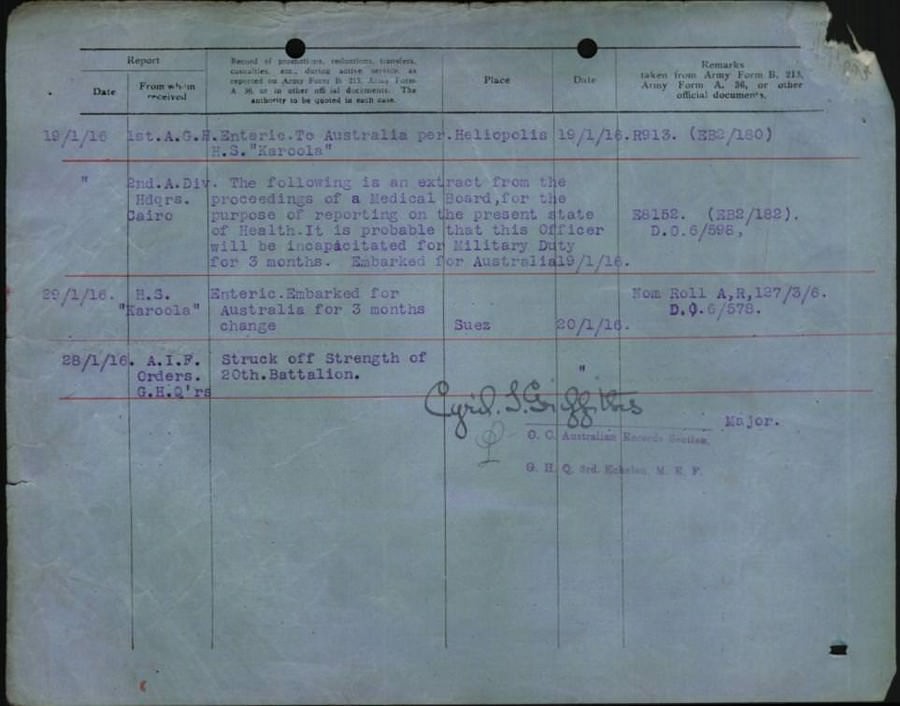 Report
Record of promotions, reductions, transfers,
casualties, etc., during active service, as
reported on Army Form B. 213, Army Form
A. 36, or in other official documents. The
authority to be quoted in each case.
Place
Date
Remarks
taken from Army Form B. 213,
Army Form A. 36, or other
official documents.
Date
From whom
received
19/1/16 1st.A.G.H. Enteric.To Australia per. Heliopolis 19/1/16. R913. (EB2/180)
H.S."Karoola"
" 2nd.A.Div. The following is an extract from the
Hdqrs. proceedings of a Medical Board,for the
Cairo purpose of reporting on the present state E8152. (EB2/182).
of Health.It is probable that this Officer D.O.6/598,
will be incapacitated for Military Duty
for 3 months. Embarked for Australia19/1/16.
29/1/16. H.S. Enteric.Embarked for Nom Roll A,R,127/3/6.
"Karoola" Australia for 3 months D.O.6/578.
change Suez 20/1/16.
28/1/16. A.I.F. Struck off Strength of
Orders. 20th.Battalion. "
G.H.Q'rs
Cyril. S. Griffiths
Major.
O. C. Australian Records Section,
G. H. Q. 3rd. Echelon, M. E. F.